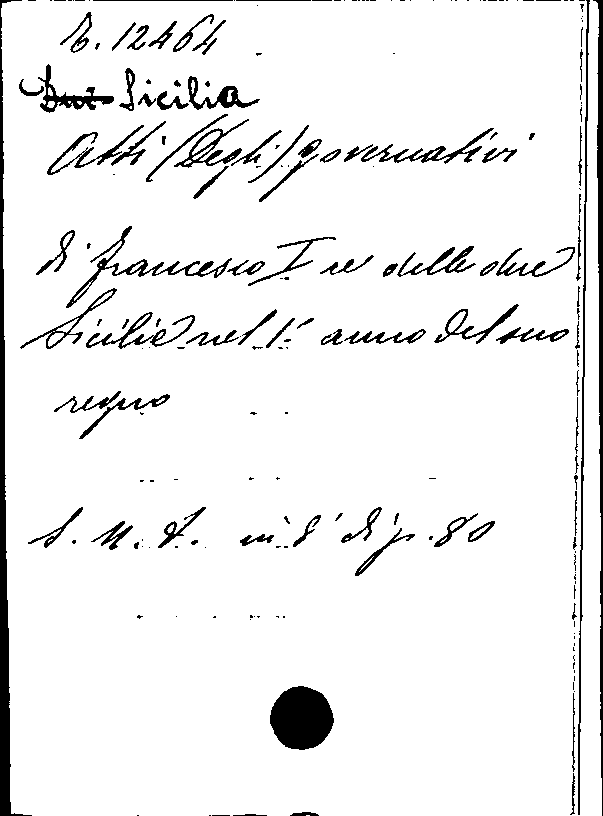 B. 12464
Due Sicilia
Atti (Degli) governativi
di Francesco I re delle due
Sicilie nel 1° anno del suo
regno
S. N. T. in 8° di p. 80